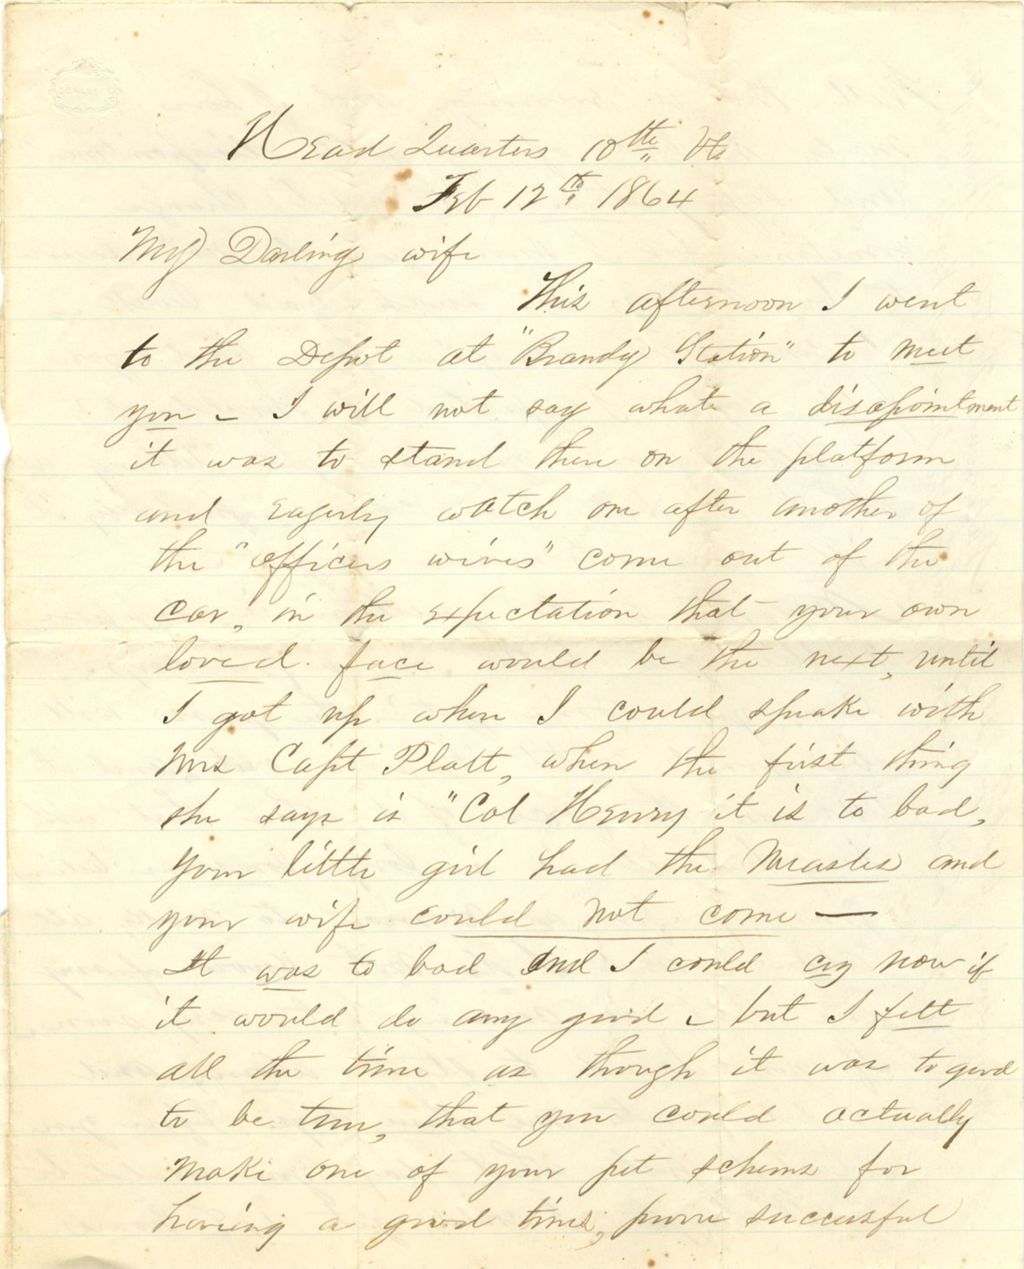 Head Quarters 10th Vt
Feb 12th 1864
My Darling wife
This afternoon I went
to the Depot at "Brandy Station" to meet
you – I will not say what a disapointment
it was to stand there on the platform
and eagerly watch one after another of
the "officers wives" come out of the
car, in the expectation that your own
loved face would be the next, until
I got up where I could speake with
Mrs Capt Platt, when the first thing
she says is "Col Henry it is to bad,
your little girl had the Measles and
your wife could not come —
It was to bad and I could cry now if
it would do any good – but I felt
all the time as though it was to good
to be true, that you could actually
make one of your pet schems for
having a good time, prove successful